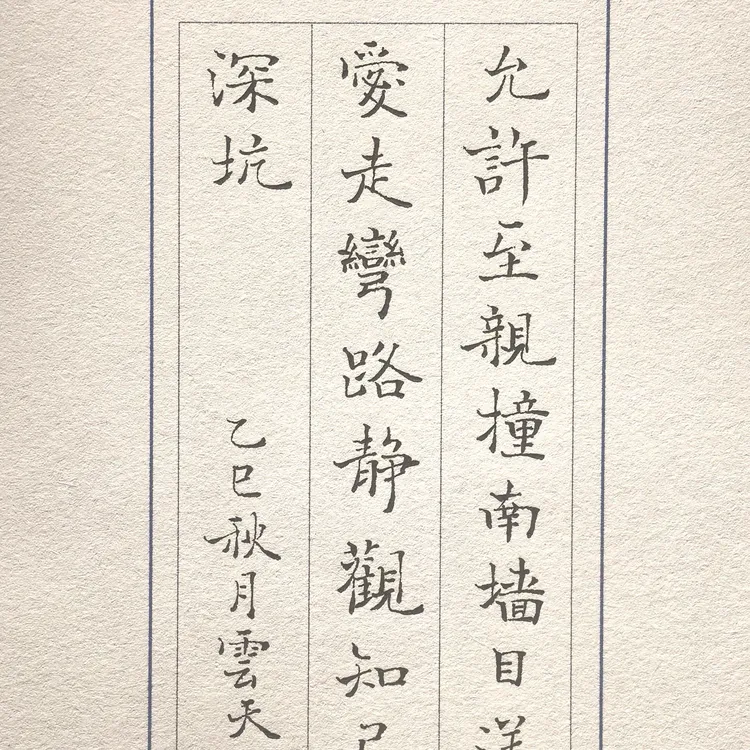 允許至親撞南墙目送
愛走彎路靜觀知己
深坑
乙巳秋月雲天